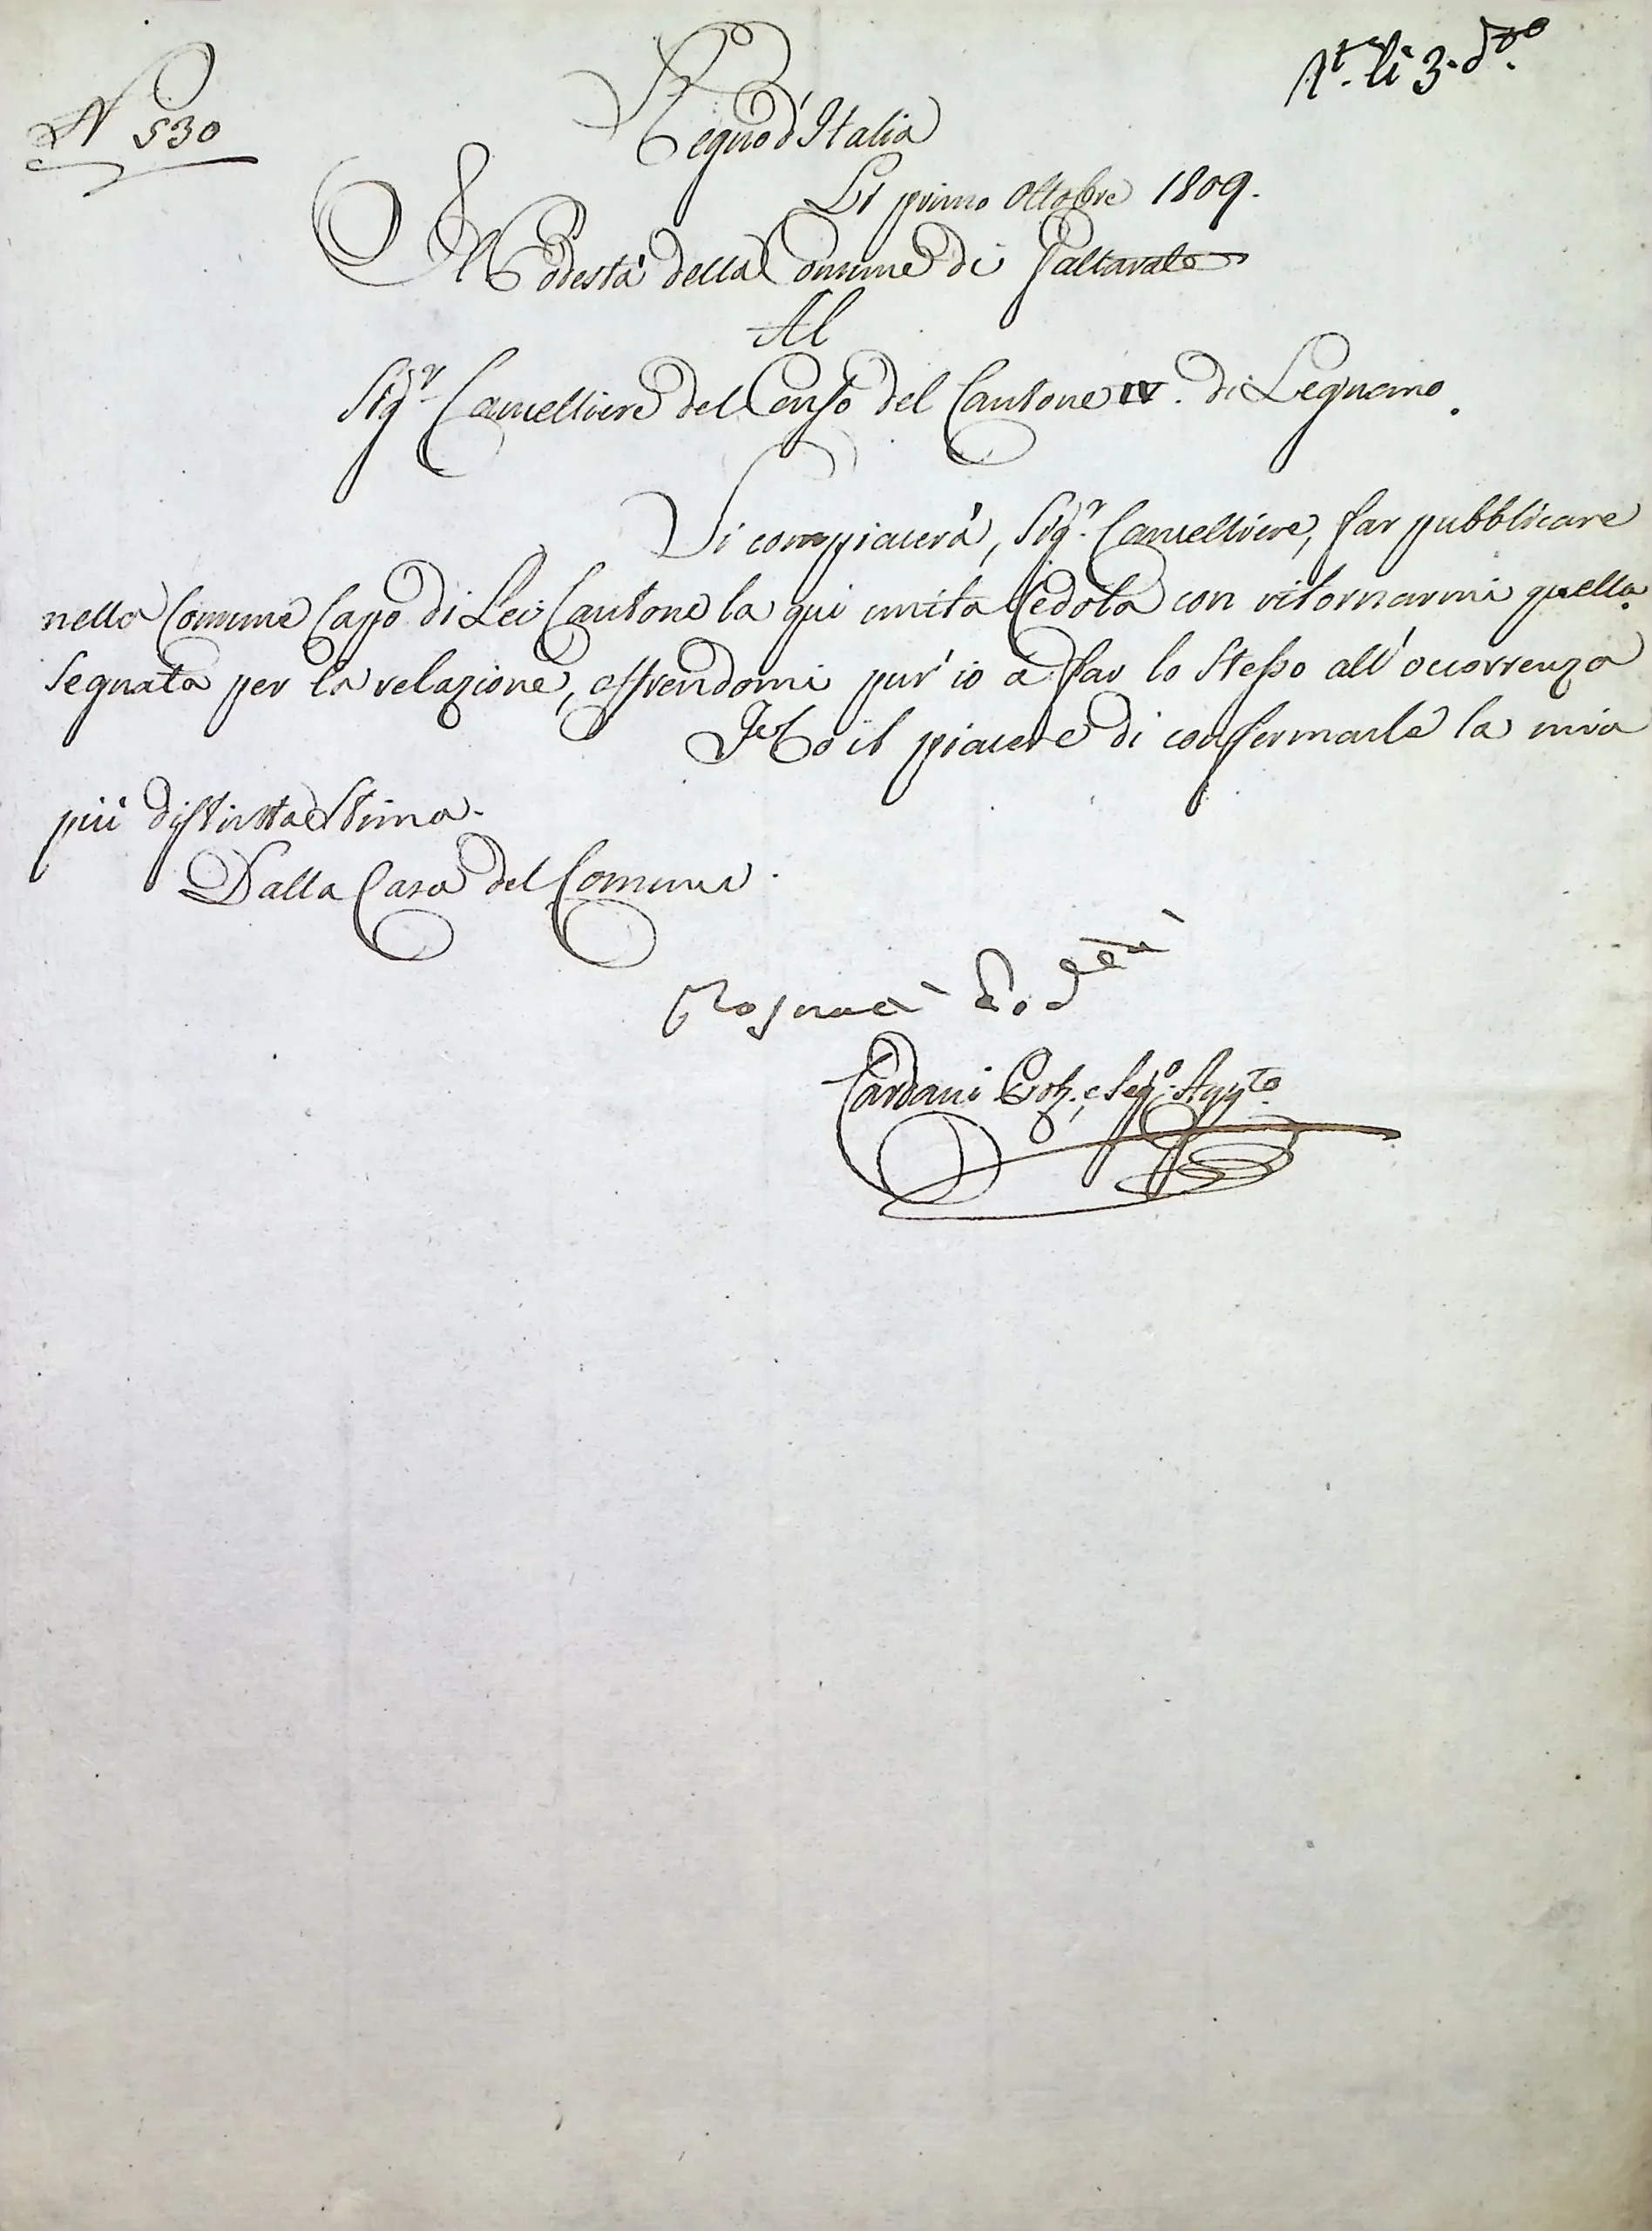 N 530
Rt. li 3. do.
Regno d'Italia
Li primo Ottobre 1809.
Il Podestà della Comune di Gallarate
Al
Sigr. Cancelliere del Censo del Cantone IV. di Legnano.
Si compiacerà, Sigr. Cancelliere, far pubblicare
nella Comune Capo di Lei Cantone la qui unita Cedola con ritornarmi quella
segnata per la relazione, offrendomi pur' io a far lo stesso all'occorrenza
Ho il piacere di confermarle la mia
più distinta stima.
Dalla Casa del Comune.
Podestà
Cardani e Segro. Aggto